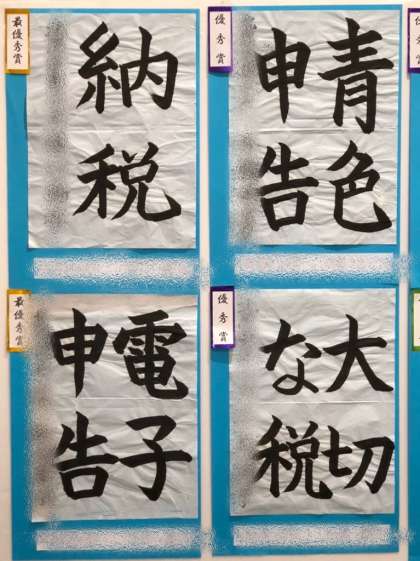 最優秀賞
納税
優秀賞
青色
申告
最優秀賞
電子
申告
優秀賞
大切
な税